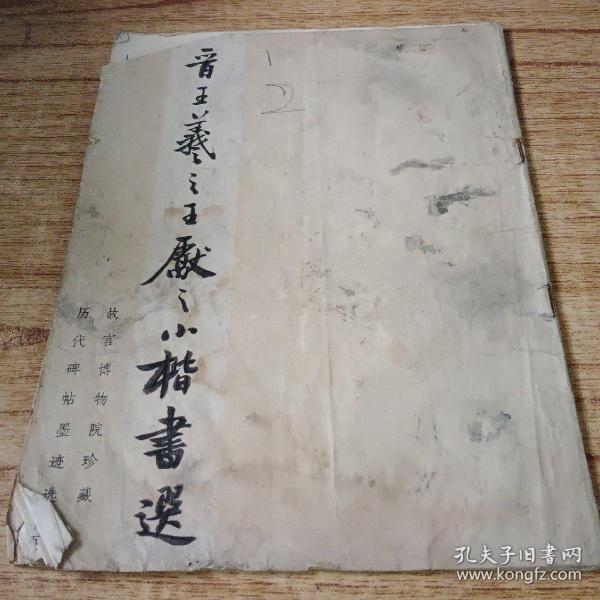 晋王羲之王獻之小楷書選
故宫博物院珍藏
历代碑帖墨迹选
1
2
孔夫子旧书网
www.kongfz.com